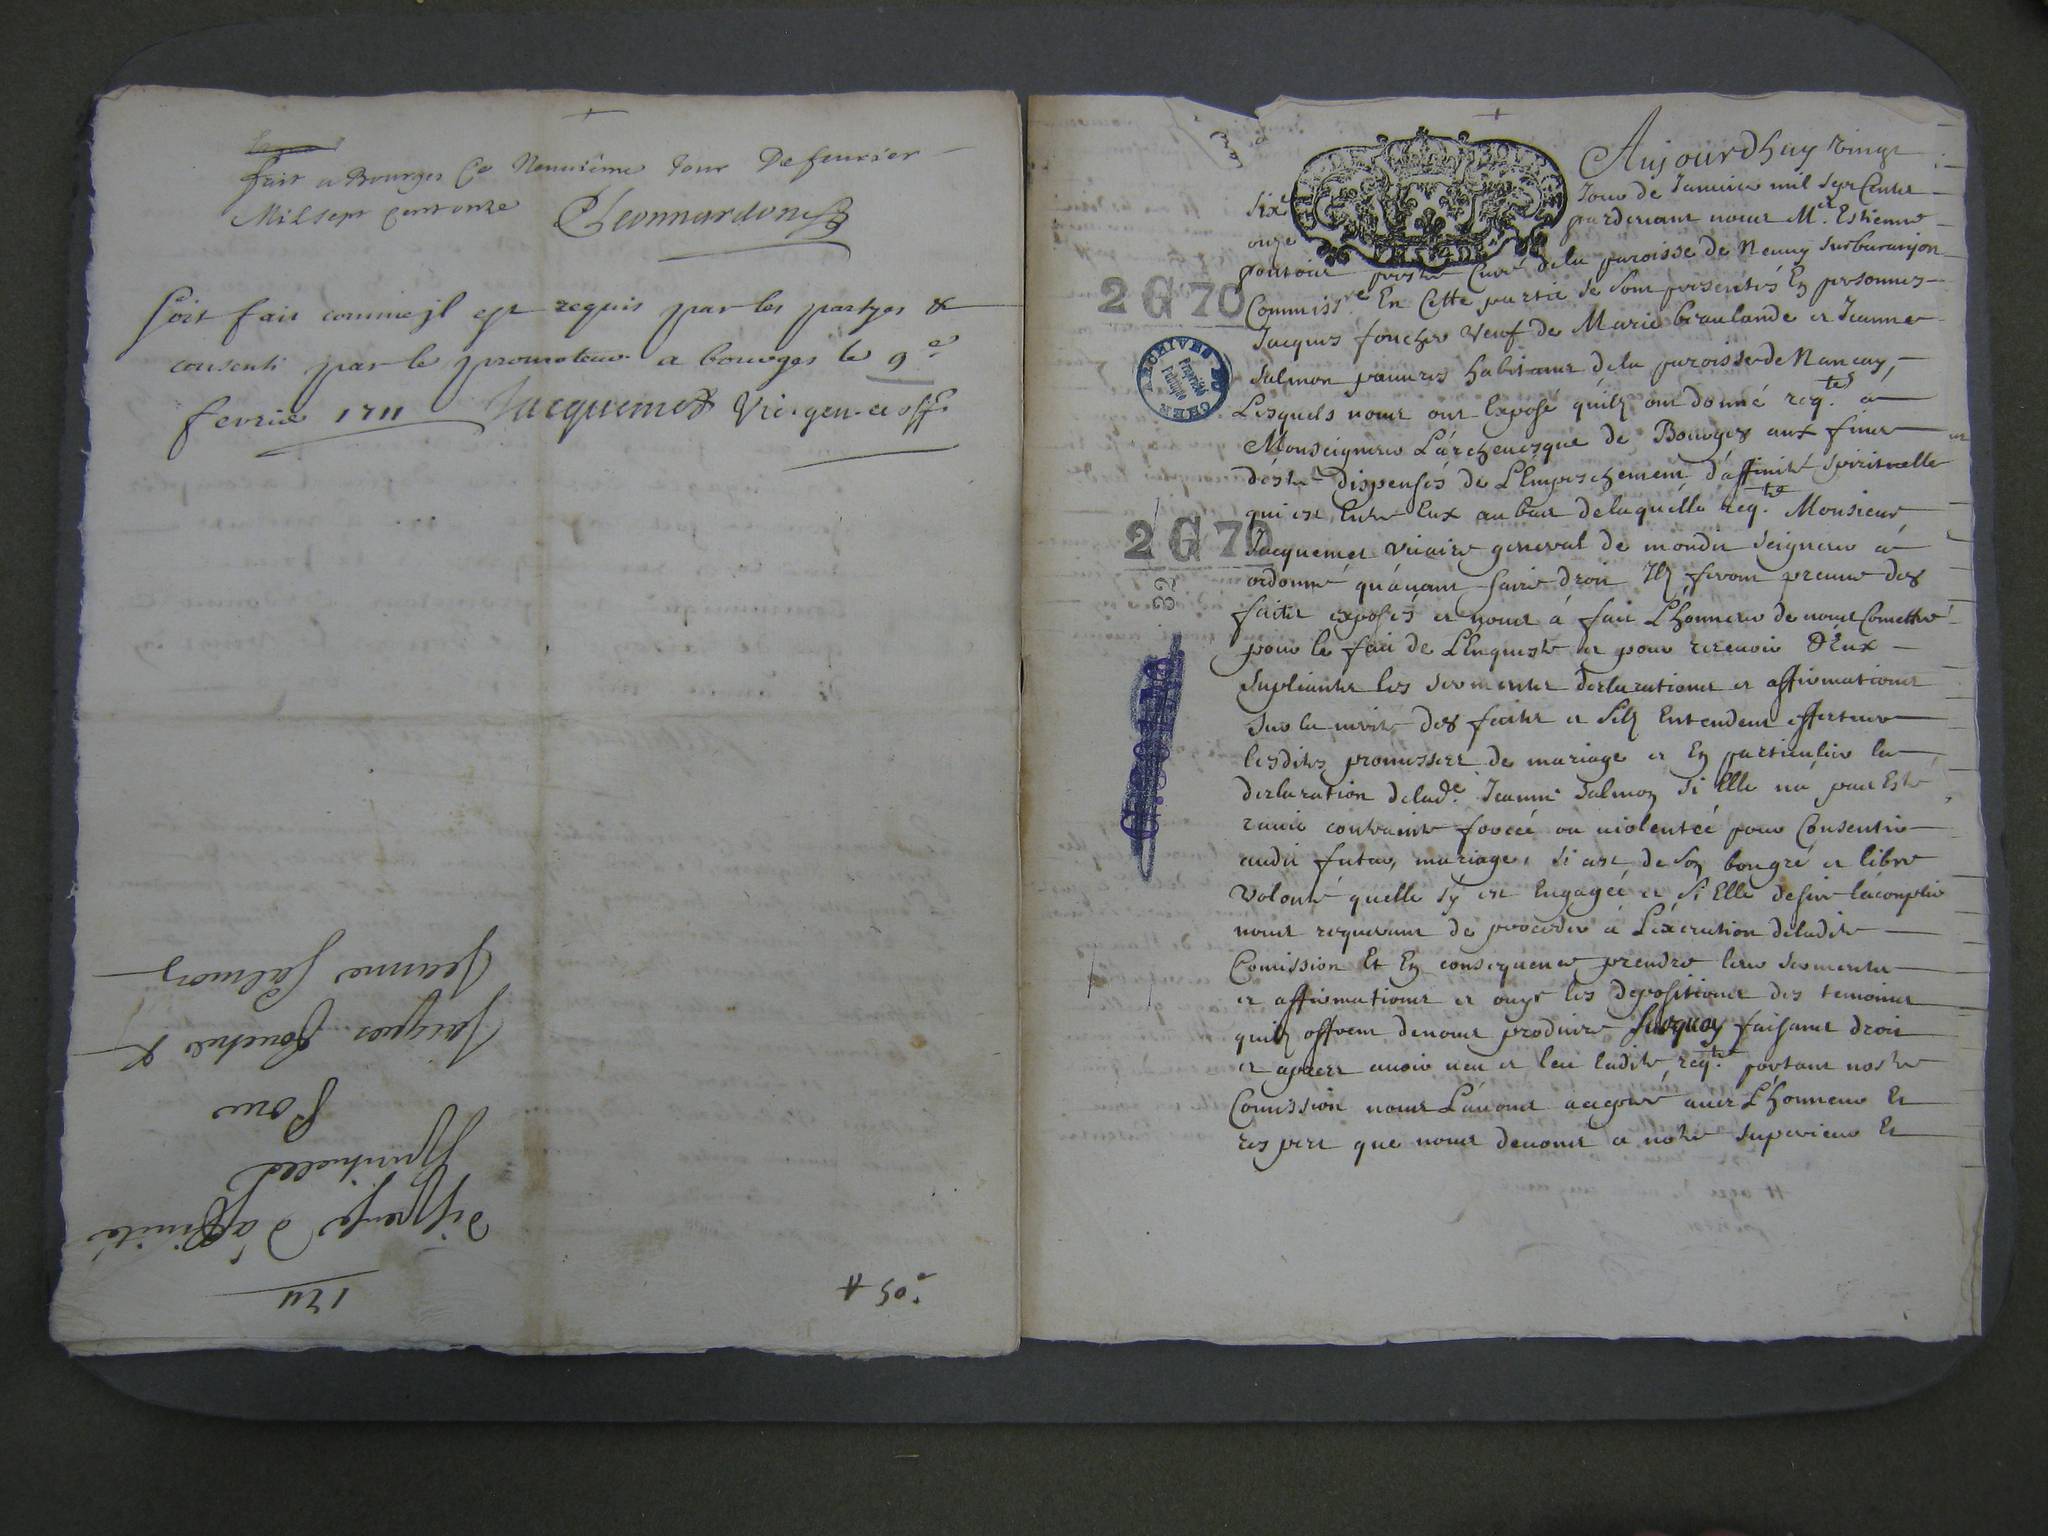 fait a Bourges Ce Neuuieme Jour De feurier
Mil sept Cent onze CLeonnardon
Soit fait comme jl est requis par les partyes &
consenti par le promoteur a bourges le 9e
fevrier 1711 Jacquemet Vic. gen. et off.
Jeanne Salmon
Jacques fouchet &
pour
spirituelle
dispense d'affinité
1711
Aujourdhuy vingt
six Jour de Januier mil sept Cents
onze pardeuant nous Mr. Estienne
pontoir prestre Curé dela paroisse de Neuuy sur baranjon
Commissre En Cette partie se sont presentés En personnes
Jacques foucher veuf de Marie braulande et Jeanne
Salmon pauures habitants dela paroisse de Nancay,
Lesquels nous ont Exposé quilz ont donné reqte a
Monseigneur L'archeuesque de Bourges aux fins
d'estre dispensés de L'Empeschement d'affinité spirituelle
qui est Entre Eux au bas de laquelle reqte Monsieur
Jacquemet vicaire general de mondit seigneur a
ordonné qu'auant faire droit Ilz feront preuue des
faits exposés et nous à fait L'honneur de nous Comettre
pour le fait de L'Enqueste et pour receuoir d'Eux
supliants les serments declarations et affirmations
sur la uerité des faits et silz Entendent effectuer
lesdites promesses de mariage et En particulier la
declaration delade. Jeanne Salmon si Elle na pas Esté
rauie contrainte forcée ou uiolentée pour Consentir
audit futur mariage, si cest de son bongré et libre
volonté quelle s'y est Engagée et si Elle desire lacomplir
nous requerant de proceder a L'éxecution deladite
Comission Et En consequence prendre leur serments
et affirmations et ouyr les depositions des temoins
quilz offrent denous produire Surquoy faisant droit
et apres auoir ueu et leu ladite reqte. portant nostre
Comission nous L'auons acepté auec L'honneur Et
respect que nous deuons a notre superieur Et
2 G 70
2 G 70
32
ARCHIVES DU CHER
Propriété Publique